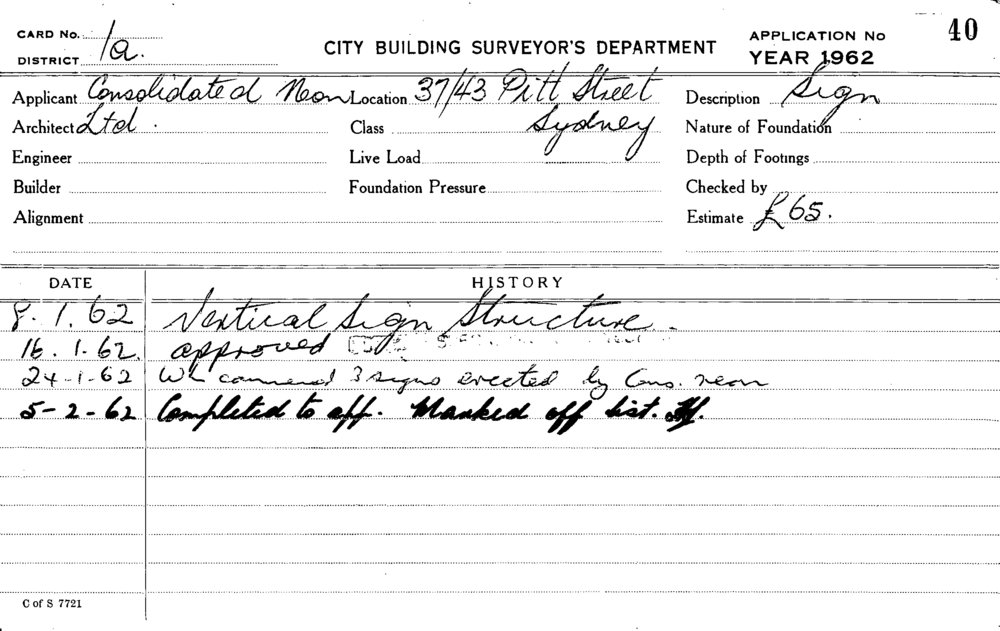 CARD No.
DISTRICT 1a.
CITY BUILDING SURVEYOR'S DEPARTMENT
APPLICATION No 40
YEAR 1962
Applicant Consolidated Neon Location 37/43 Pitt Street Description Sign
Architect Ltd. Class Sydney Nature of Foundation
Engineer Live Load Depth of Footings
Builder Foundation Pressure Checked by
Alignment Estimate £65.
DATE HISTORY
8.1.62 Vertical Sign Structure.
16.1.62. approved
24-1-62 3 signs erected by Cons. neon
5-2-62 Completed to app. Marked off list.
C of S 7721